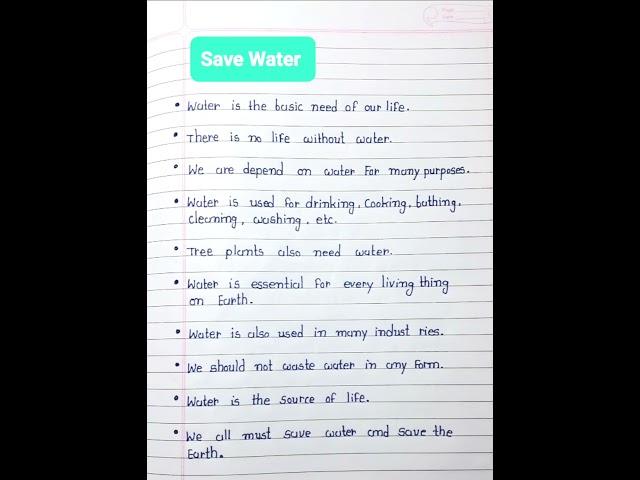 Save Water
• Water is the basic need of our life.
• There is no life without water.
• We are depend on water for many purposes.
• Water is used for drinking, cooking, bathing,
cleaning, washing, etc.
• Tree plants also need water.
• Water is essential for every living thing
on Earth.
• Water is also used in many indust ries.
• We should not waste water in any form.
• Water is the source of life.
• We all must save water and save the
Earth.